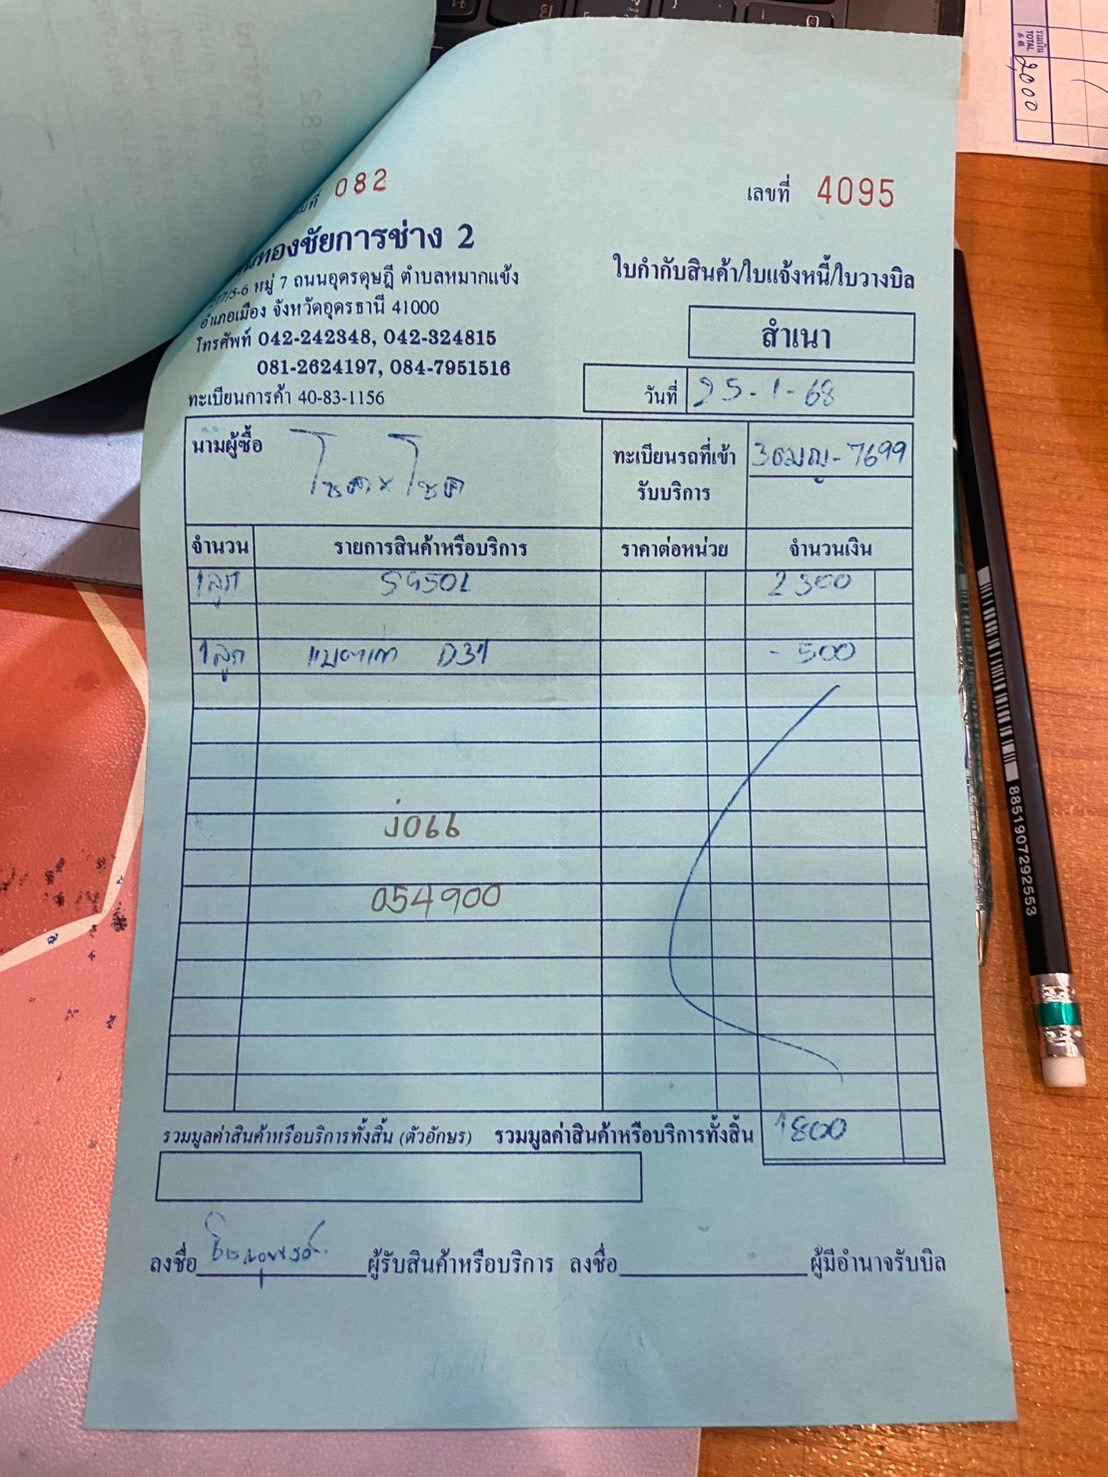 รวมเงิน
TOTAL
2,000
082
เลขที่ 4095
ทองชัยการช่าง 2
ใบกำกับสินค้า/ใบแจ้งหนี้/ใบวางบิล
หมู่ 7 ถนนอุดรดุษฎี ตำบลหมากแข้ง
อำเภอเมือง จังหวัดอุดรธานี 41000
สำเนา
โทรศัพท์ 042-242348, 042-324815
081-2624197, 084-7951516
วันที่ 25-1-68
ทะเบียนการค้า 40-83-1156
นามผู้ซื้อ
ทะเบียนรถที่เข้ารับบริการ 3ฒญ-7699
จำนวน รายการสินค้าหรือบริการ ราคาต่อหน่วย จำนวนเงิน
1ลูก 5950L 2300
1ลูก แบตเก่า D31 -500
J066
054900
รวมมูลค่าสินค้าหรือบริการทั้งสิ้น (ตัวอักษร) รวมมูลค่าสินค้าหรือบริการทั้งสิ้น 1800
ลงชื่อ ผู้รับสินค้าหรือบริการ ลงชื่อ ผู้มีอำนาจรับบิล
8851907292553